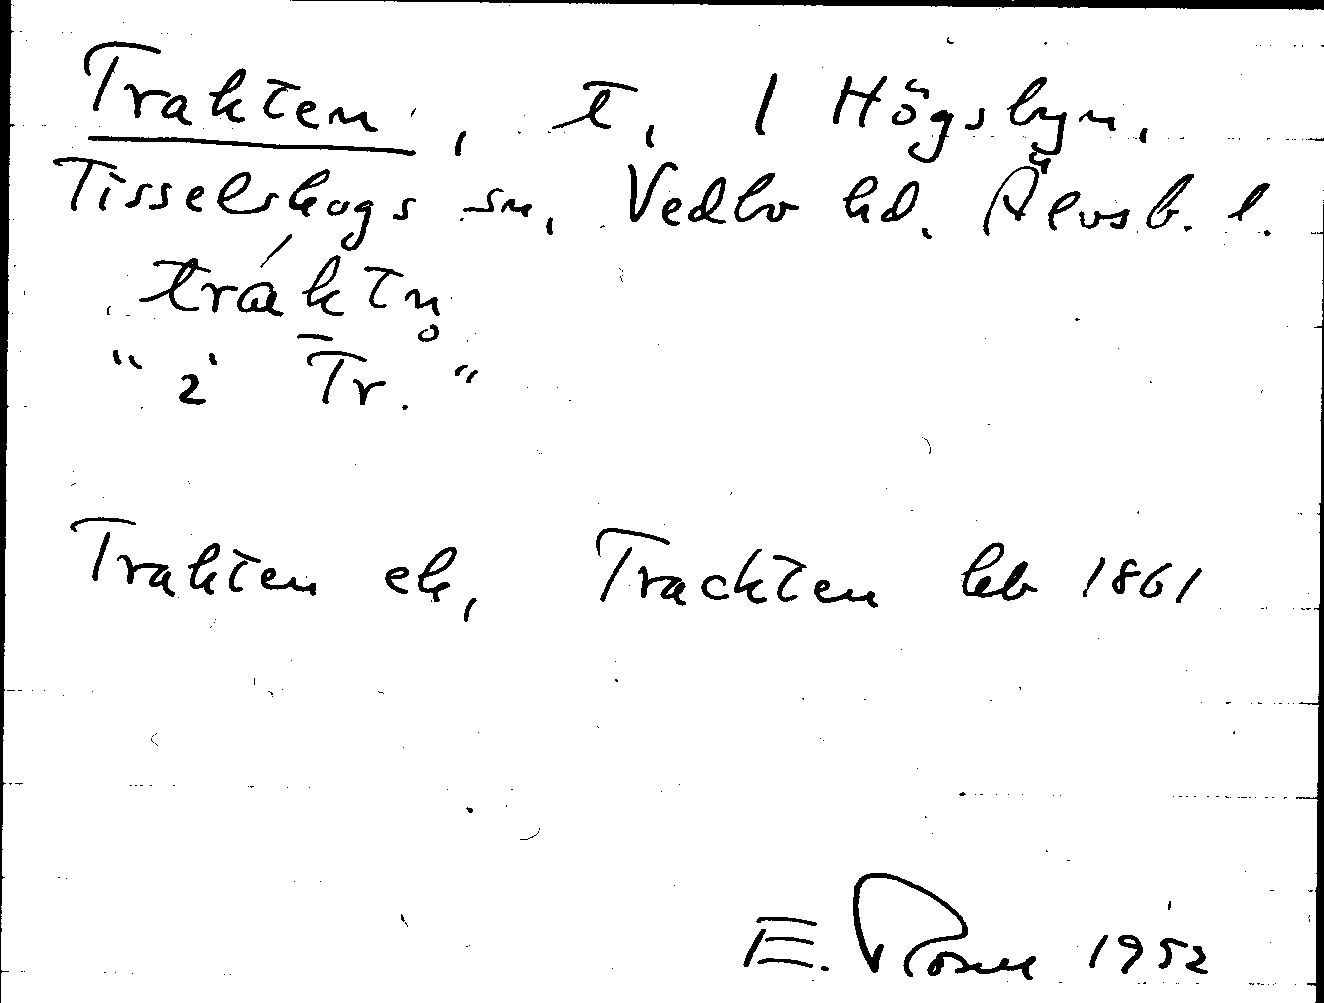 Trakten, t, 1 Högsbyn,
Tisselskogs sn, Vedbo hd. Älvsb. l.
tráktn̥
"i Tr."
Trakten ek, Trackten hb 1861
E. Rosell 1952